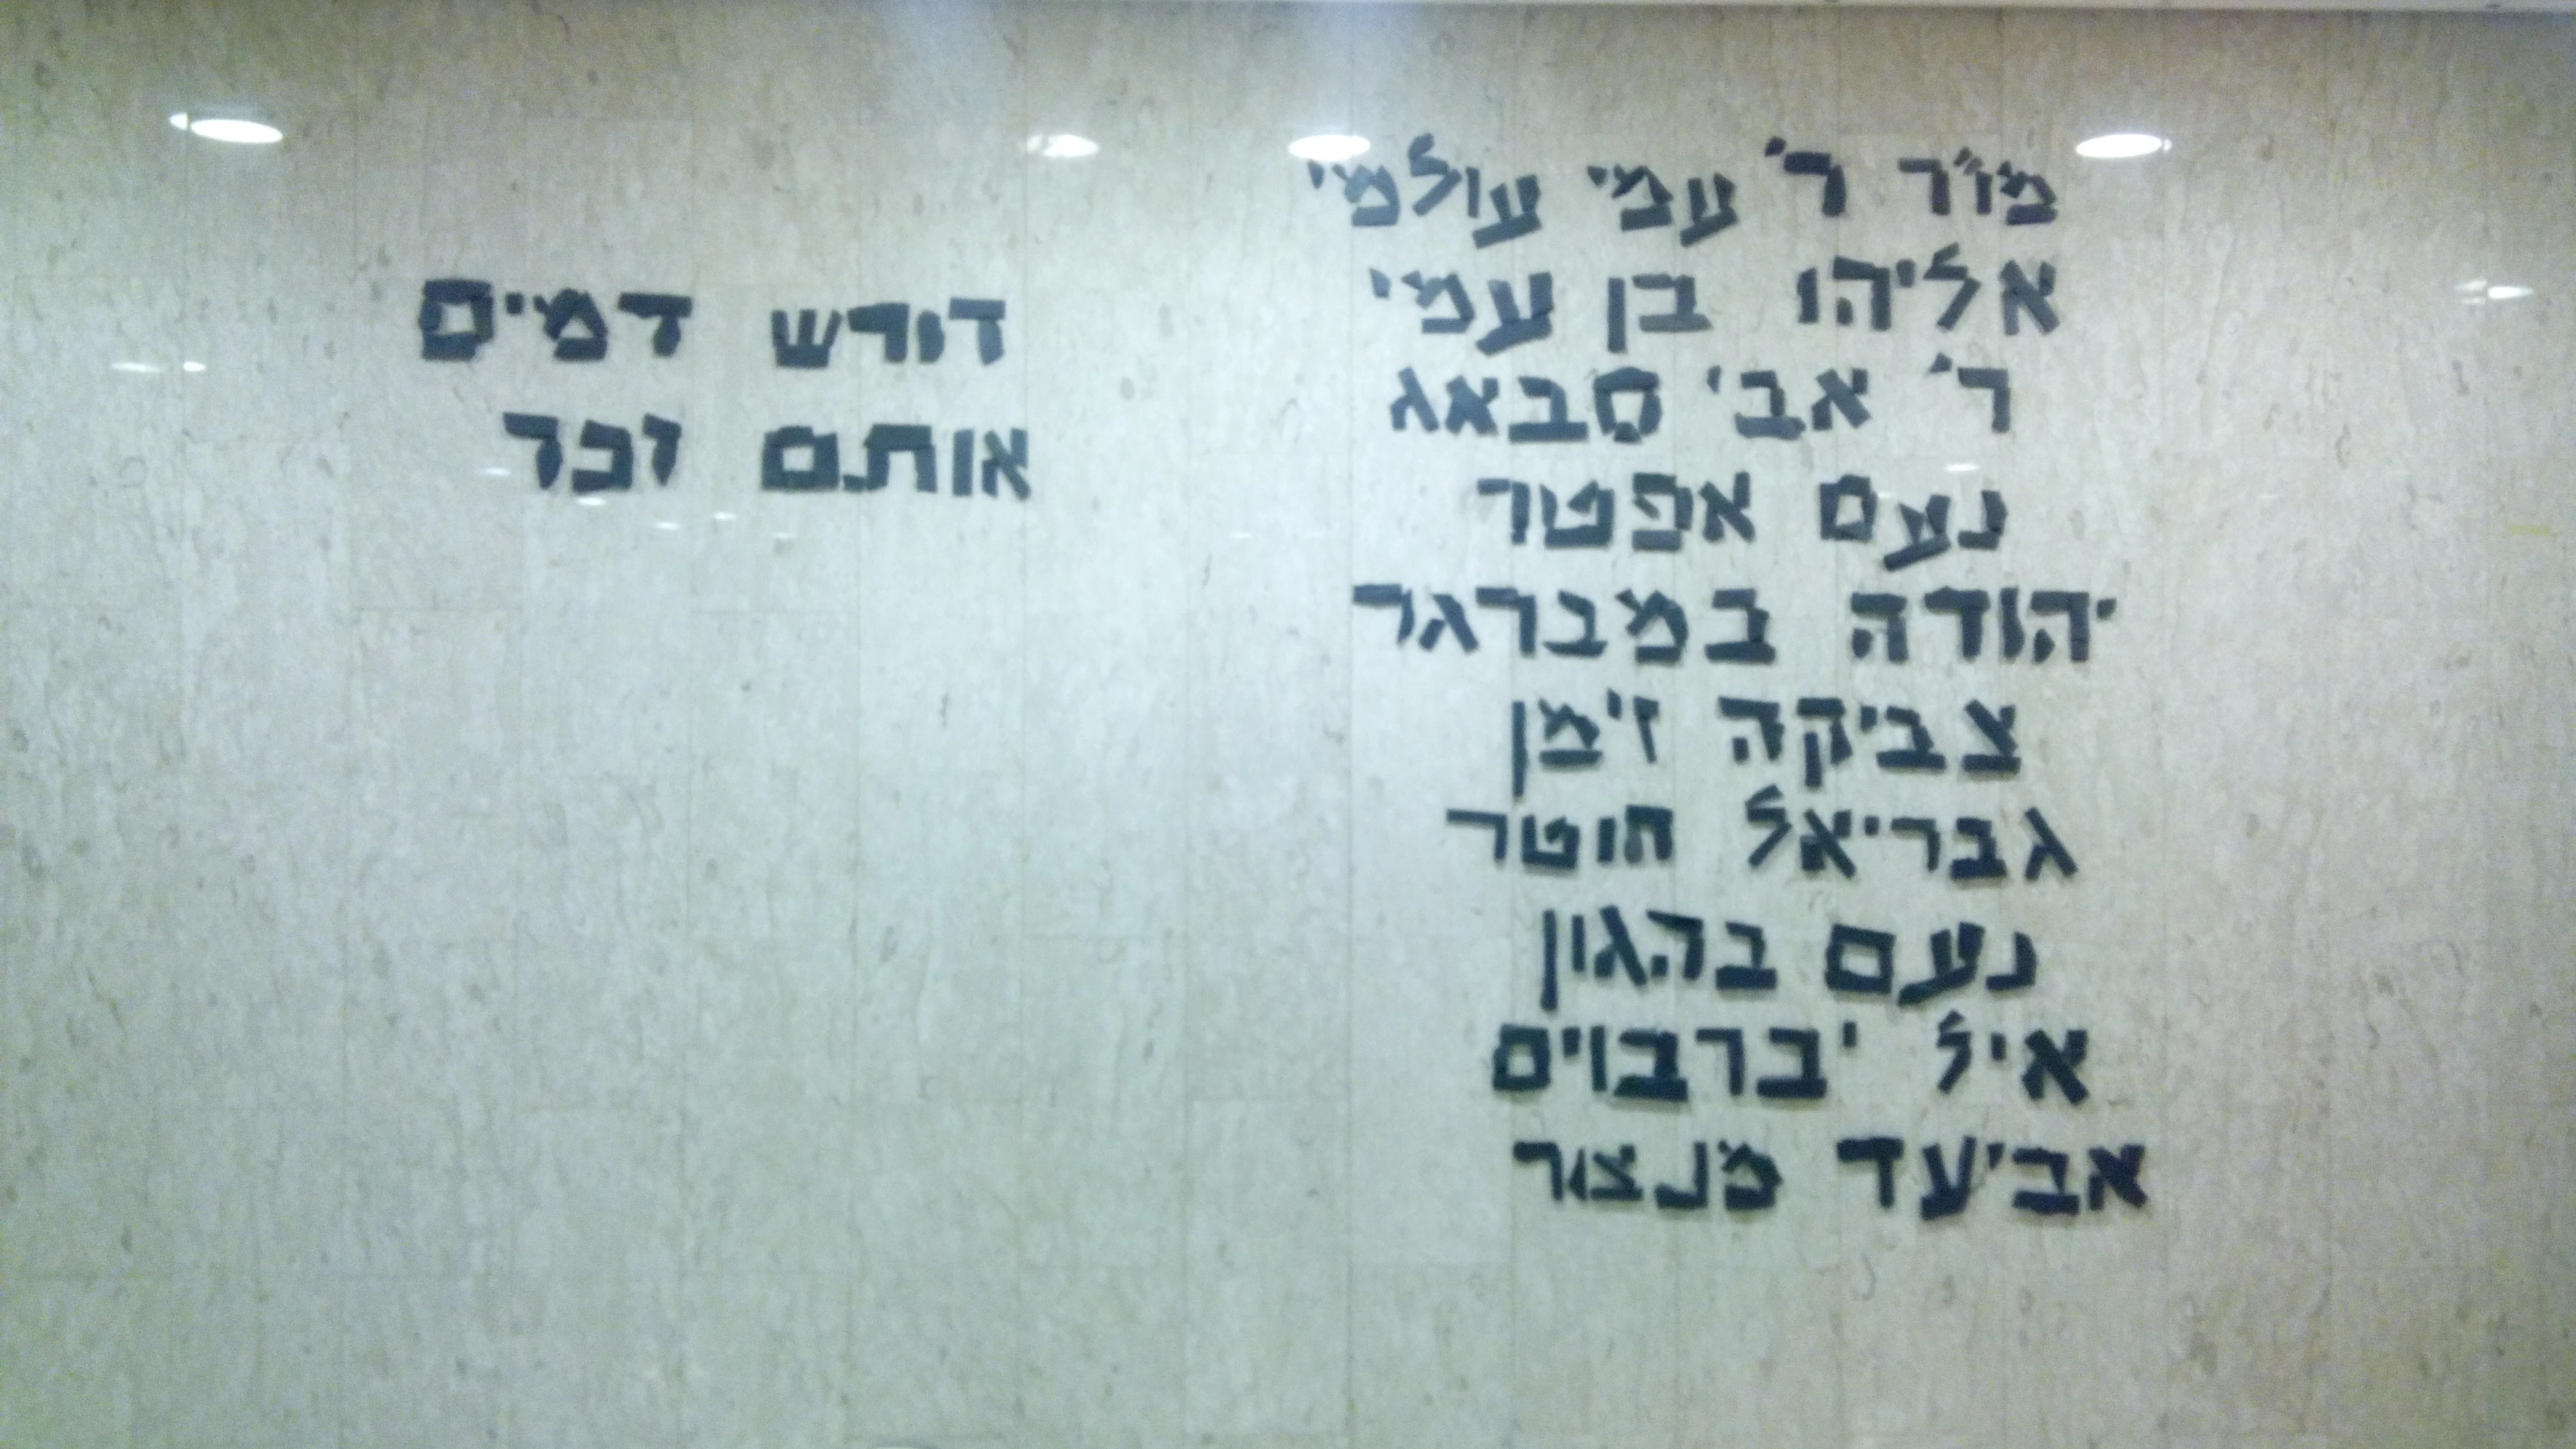 מו"ר ר' עמי עולמי
אליהו בן עמי
ר' אבי סבאג
נעם אפטר
יהודה במברגר
צביקה זימן
גבריאל חוטר
נעם בהגון
איל יברבוים
אביעד מנצור
דורש דמים
אותם זכר